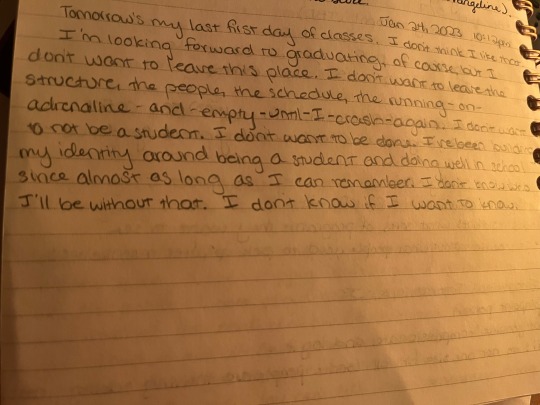 angeline).
Jan 24, 2023
Tomorrow's my last first day of classes. I don't think I like
I'm looking forward to graduating, of course, but I
don't want to leave this place. I don't want to leave the
structure, the people, the schedule, the running-on-
adrenaline-and-empty-until-I-crash-again. I don't want
to not be a student. I don't want to be done. I've been building
my identity around being a student and doing well in school
since almost as long as I can remember. I don't know who
I'll be without that. I don't know if I want to know.